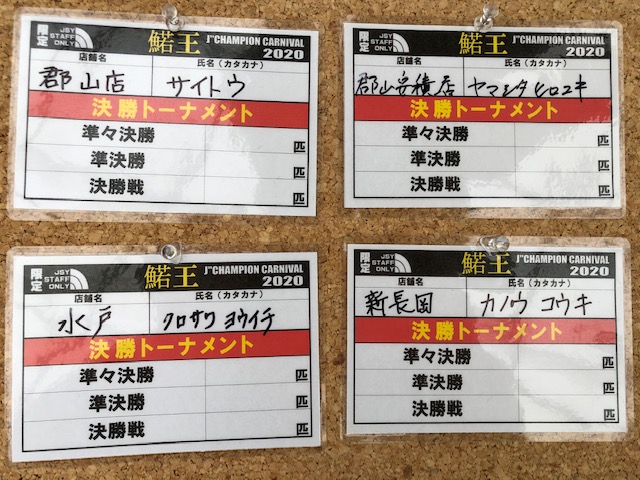 限定
JSY
STAFF
ONLY
鯃王
J"CHAMPION CARNIVAL
2020
店舗名 氏名（カタカナ）
郡山店 サイトウ
決勝トーナメント
準々決勝 匹
準決勝 匹
決勝戦 匹
限定
JSY
STAFF
ONLY
鯃王
J"CHAMPION CARNIVAL
2020
店舗名 氏名（カタカナ）
郡山安積店 ヤマシタヒロユキ
決勝トーナメント
準々決勝 匹
準決勝 匹
決勝戦 匹
限定
JSY
STAFF
ONLY
鯃王
J"CHAMPION CARNIVAL
2020
店舗名 氏名（カタカナ）
水戸 クロサワ ヨウイチ
決勝トーナメント
準々決勝 匹
準決勝 匹
決勝戦 匹
限定
JSY
STAFF
ONLY
鯃王
J"CHAMPION CARNIVAL
2020
店舗名 氏名（カタカナ）
新長岡 カノウ コウキ
決勝トーナメント
準々決勝 匹
準決勝 匹
決勝戦 匹